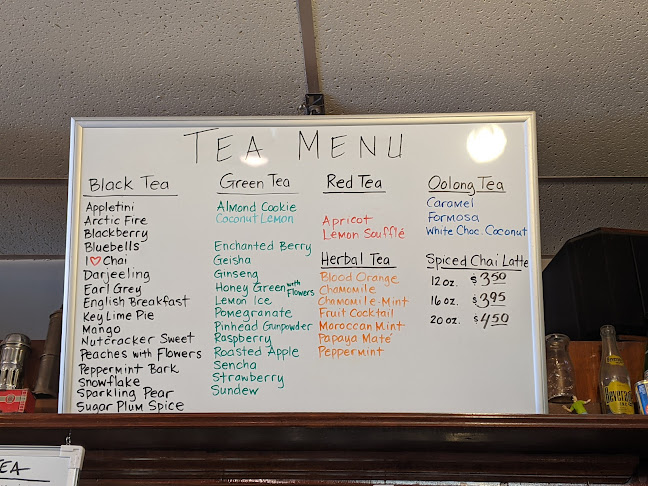 TEA MENU
Black Tea
Appletini
Arctic Fire
Blackberry
Bluebells
I ♡ Chai
Darjeeling
Earl Grey
English Breakfast
Key Lime Pie
Mango
Nutcracker Sweet
Peaches with Flowers
Peppermint Bark
Snowflake
Sparkling Pear
Sugar Plum Spice
Green Tea
Almond Cookie
Coconut Lemon
Enchanted Berry
Geisha
Ginseng
Honey Green with Flowers
Lemon Ice
Pomegranate
Pinhead Gunpowder
Raspberry
Roasted Apple
Sencha
Strawberry
Sundew
Red Tea
Apricot
Lemon Soufflé
Herbal Tea
Blood Orange
Chamomile
Chamomile-Mint
Fruit Cocktail
Moroccan Mint
Papaya Maté
Peppermint
Oolong Tea
Caramel
Formosa
White Choc. Coconut
Spiced Chai Latte
12 oz. $3.50
16 oz. $3.95
20 oz. $4.50
TEA